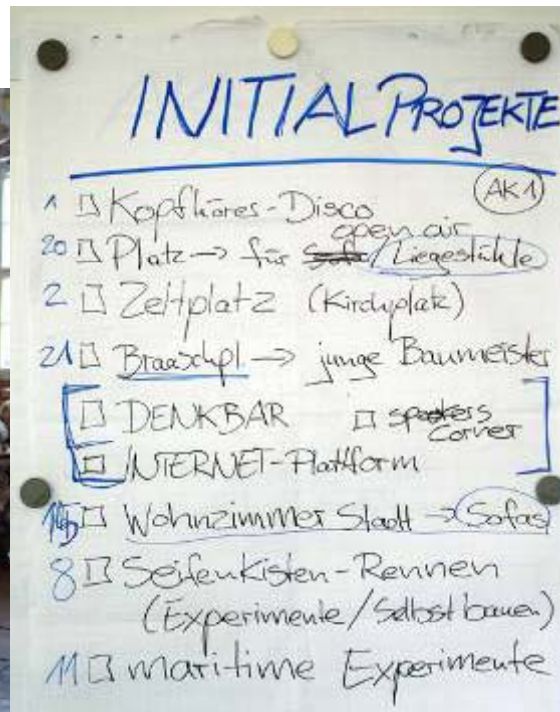 INITIAL PROJEKTE
AK1
1 Kopfhörer-Disco
open air
20 Platz → für /Liegestühle
2 Zeltplatz (Kirchplatz)
21 Braaschpl. → junge Baumeister
DENKBAR speakers
corner
INTERNET-Plattform
Wohnzimmer Stadt → Sofas
8 Seifenkisten-Rennen
(Experimente/Selbst bauen)
11 maritime Experimente